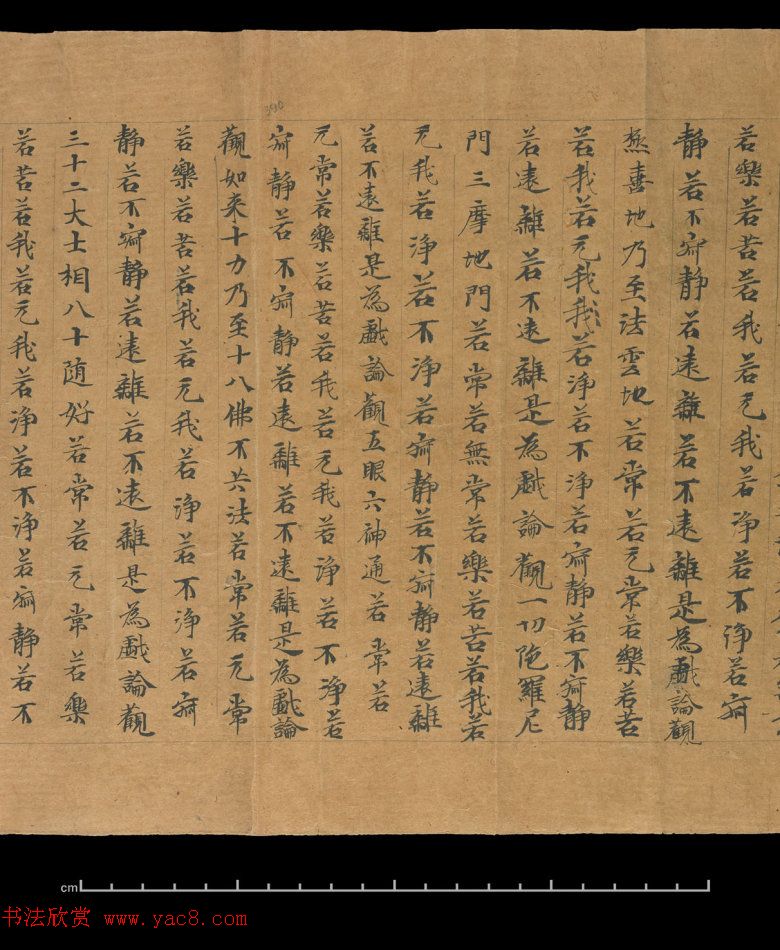 若樂若苦若我若无我若淨若不淨若寂
静若不寂静若遠離若不遠離是為戲論觀
極喜地乃至法雲地若常若无常若樂若苦
若我若无我我若淨若不淨若寂静若不寂静
若遠離若不遠離是為戲論觀一切陁羅尼
門三摩地門若常若無常若樂若苦若我若
无我若淨若不淨若寂静若不寂静若遠離
若不遠離是為戲論觀五眼六神通若常若
无常若樂若苦若我若无我若淨若不淨若
寂静若不寂静若遠離若不遠離是為戲論
觀如来十力乃至十八佛不共法若常若无常
若樂若苦若我若无我若淨若不淨若寂
静若不寂静若遠離若不遠離是為戲論觀
三十二大士相八十随好若常若无常若樂
若苦若我若无我若淨若不淨若寂静若不
390
cm
书法欣赏 www.yac8.com